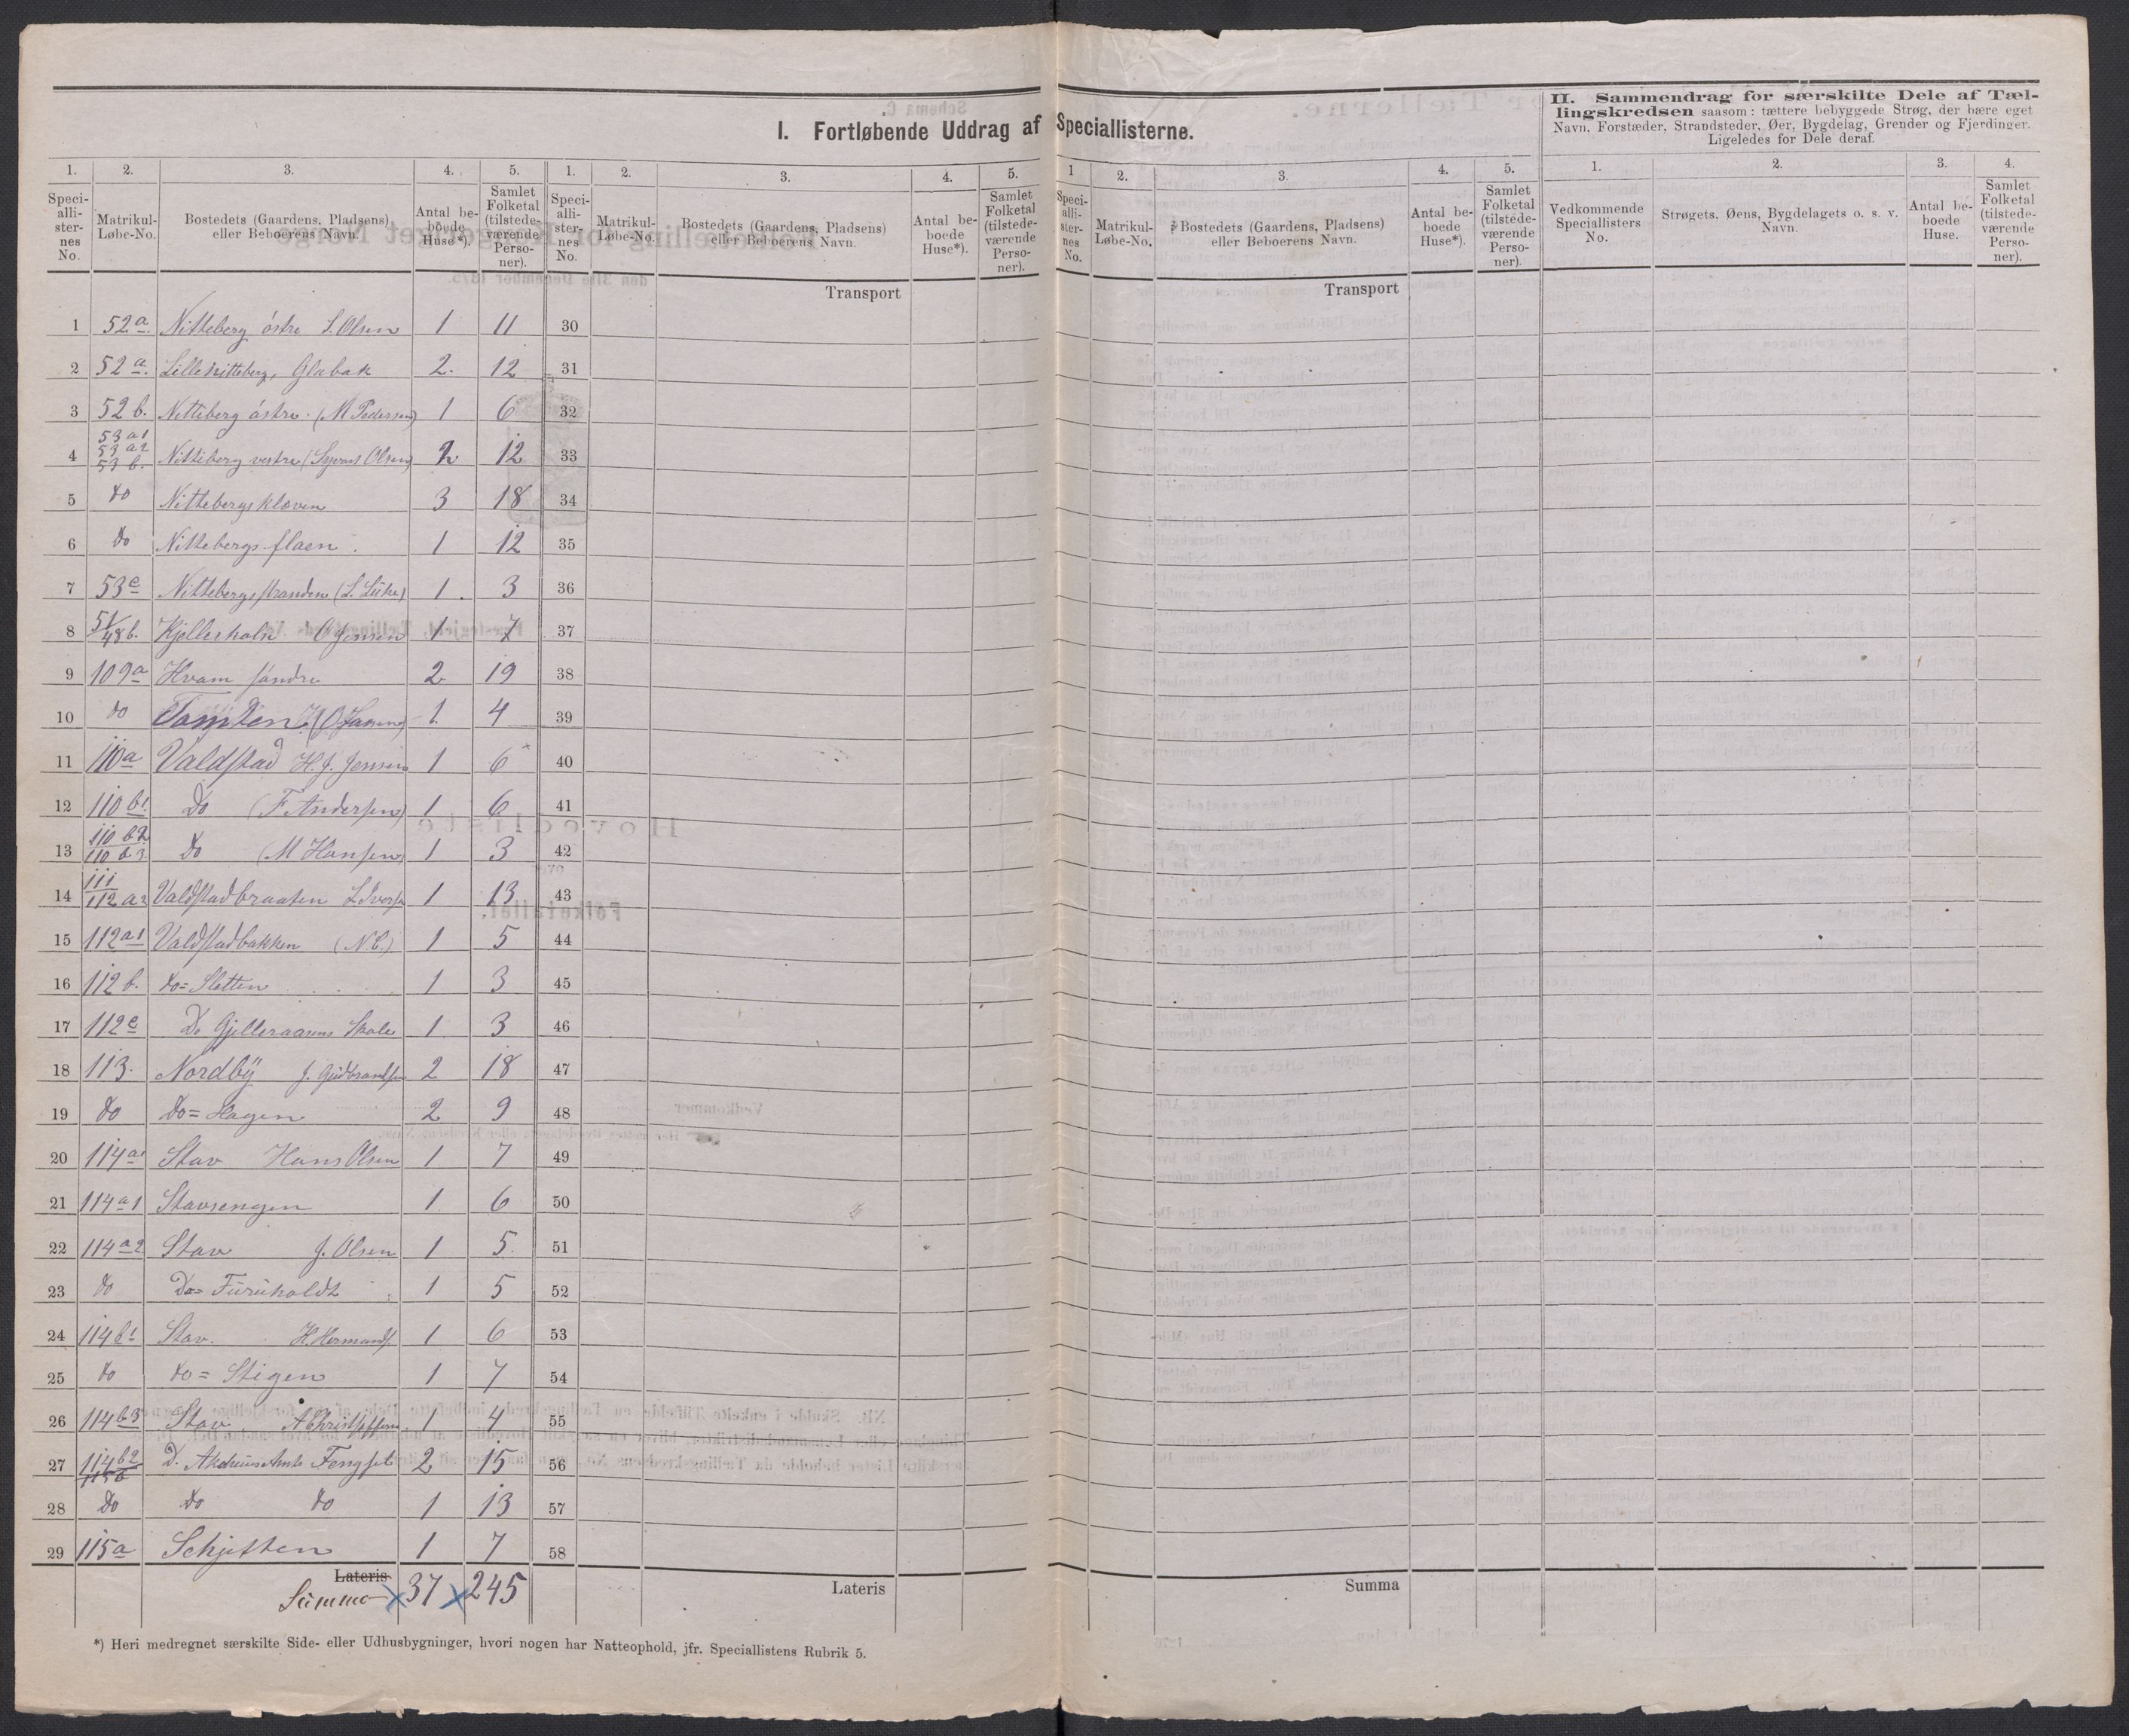 I. Fortløbende Uddrag af Speciallisterne.
II. Sammendrag for særskilte Dele af Tæl-
lingskredsen saasom: tættere bebyggede Strøg, der bære eget
Navn, Forstæder, Strandsteder, Øer, Bygdelag, Grender og Fjerdinger.
Ligeledes for Dele deraf.
1. 2. 3. 4. 5. 1. 2. 3. 4. 5. 1 2. 3. 4. 5. 1. 2. 3. 4.
Speci-alli-ster-nes No. Matrikul-Løbe-No. Bostedets (Gaardens, Pladsens) eller Beboerens Navn. Antal be-boede Huse*). Samlet Folketal (tilstede-værende Perso-ner).
Speci-alli-ster-nes No. Matrikul-Løbe-No. Bostedets (Gaardens, Pladsens) eller Beboerens Navn. Antal be-boede Huse*). Samlet Folketal (tilstede-værende Perso-ner).
Speci-alli-ster-nes No. Matrikul-Løbe-No. Bostedets (Gaardens, Pladsens) eller Beboerens Navn. Antal be-boede Huse*). Samlet Folketal (tilstede-værende Perso-ner).
Vedkommende Speciallisters No. Strøgets, Øens, Bygdelagets o. s. v. Navn. Antal be-boede Huse. Samlet Folketal (tilstede-værende Perso-ner).
Transport Transport
1 52a. Nitteberg østre S. Olsen 1 11 30
2 52a. Lillenitteberg, Glabak 2. 12 31
3 52b. Nitteberg østre (M Pedersen) 1 6 32
4 53a1 53a2 53b. Nitteberg vestre (Syvert Olsen) 2 12 33
5 do Nittebergskloven 3 18 34
6 do Nittebergsflaen. 1 12 35
7 53c Nittebergstranden 1. 3 36
8 51/48b. Kjellerholn O Jensen 1 7 37
9 109a Hvam søndre 2 19 38
10 do Tomten 1. 4 39
11 110a Valdstad H. J. Jensen 1 6 40
12 110b1. Do (F. Andersen) 1 6 41
13 110b2 110b3. do (M Hansen) 1 3 42
14 111 112a2 Valdstadbraaten 1 13 43
15 112a1 Valdstadbakken 1 5 44
16 112b. do=Sletten 1 3 45
17 112c Do Gjelleraasens Skole 1. 3 46
18 113. Nordby J. Gudbrandsen 2 18 47
19 do do=Hagen 2 9 48
20 114a1 Stav Hans Olsen 1 7 49
21 114a1 Stavsengen 1 6 50
22 114a2 Stav J. Olsen 1 5. 51
23 do Do=Furuholdt 1 5 52
24 114b1 Stav. H. Hermands. 1 6 53
25 do do=Stigen 1 7 54
26 114b3 Stav A Christoffersen 1 4 55
27 114b2 115b D. Akershus Amts Fengsel 2 15 56
28 Do do do 1 13 57
29 115a Schjetten 1 7 58
Lateris Lateris Summa
Summa 37 245
*) Heri medregnet særskilte Side- eller Udhusbygninger, hvori nogen har Natteophold, jfr. Speciallistens Rubrik 5.